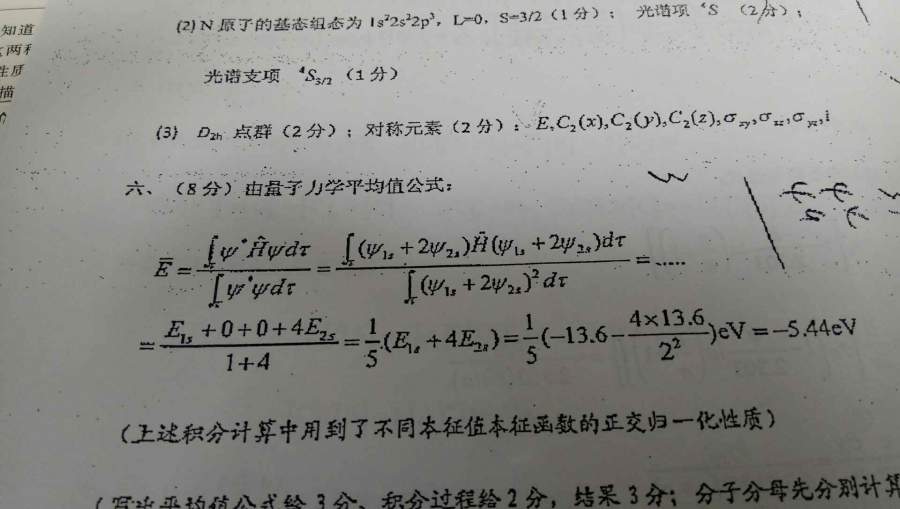 知道
性质
描
(2) N 原子的基态组态为 1s²2s²2p³, L=0, S=3/2 (1 分); 光谱项 ⁴S (2 分);
光谱支项 ⁴S₃/₂ (1 分)
(3) D₂ₕ 点群 (2 分); 对称元素 (2 分): E,C₂(x),C₂(y),C₂(z),σxy,σxz,σyz,i
六、(8 分) 由量子力学平均值公式:
Ē = ∫τ ψ* Ĥψdτ / ∫τ ψ*ψdτ = ∫τ (ψ1s + 2ψ2s)Ĥ(ψ1s + 2ψ2s)dτ / ∫τ (ψ1s + 2ψ2s)² dτ = .....
= (E1s + 0 + 0 + 4E2s) / (1+4) = 1/5 (E1s + 4E2s) = 1/5 (−13.6 − 4×13.6 / 2²)eV = −5.44eV
(上述积分计算中用到了不同本征值本征函数的正交归一化性质)
(写出平均值公式给 3 分、积分过程给 2 分, 结果 3 分; 分子分母先分别计算